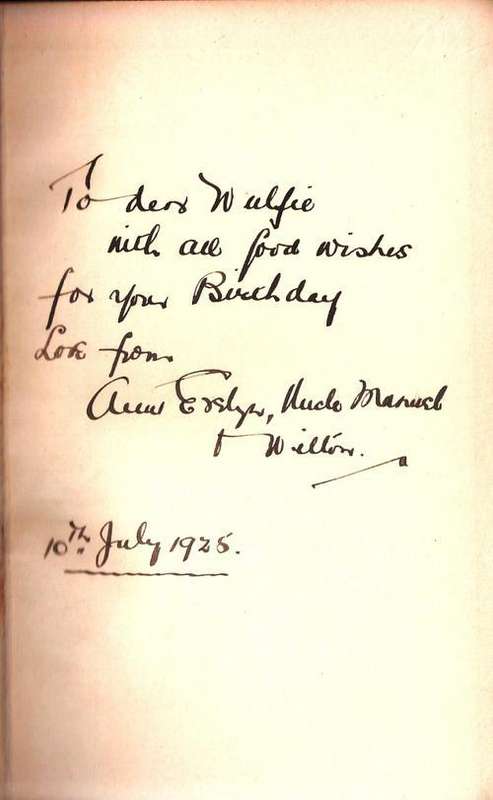 To dear Wulfie
with all good wishes
for your Birthday
Love from
Aunt Evelyn, Uncle Manuel
+ Wilton.
10th July 1925.